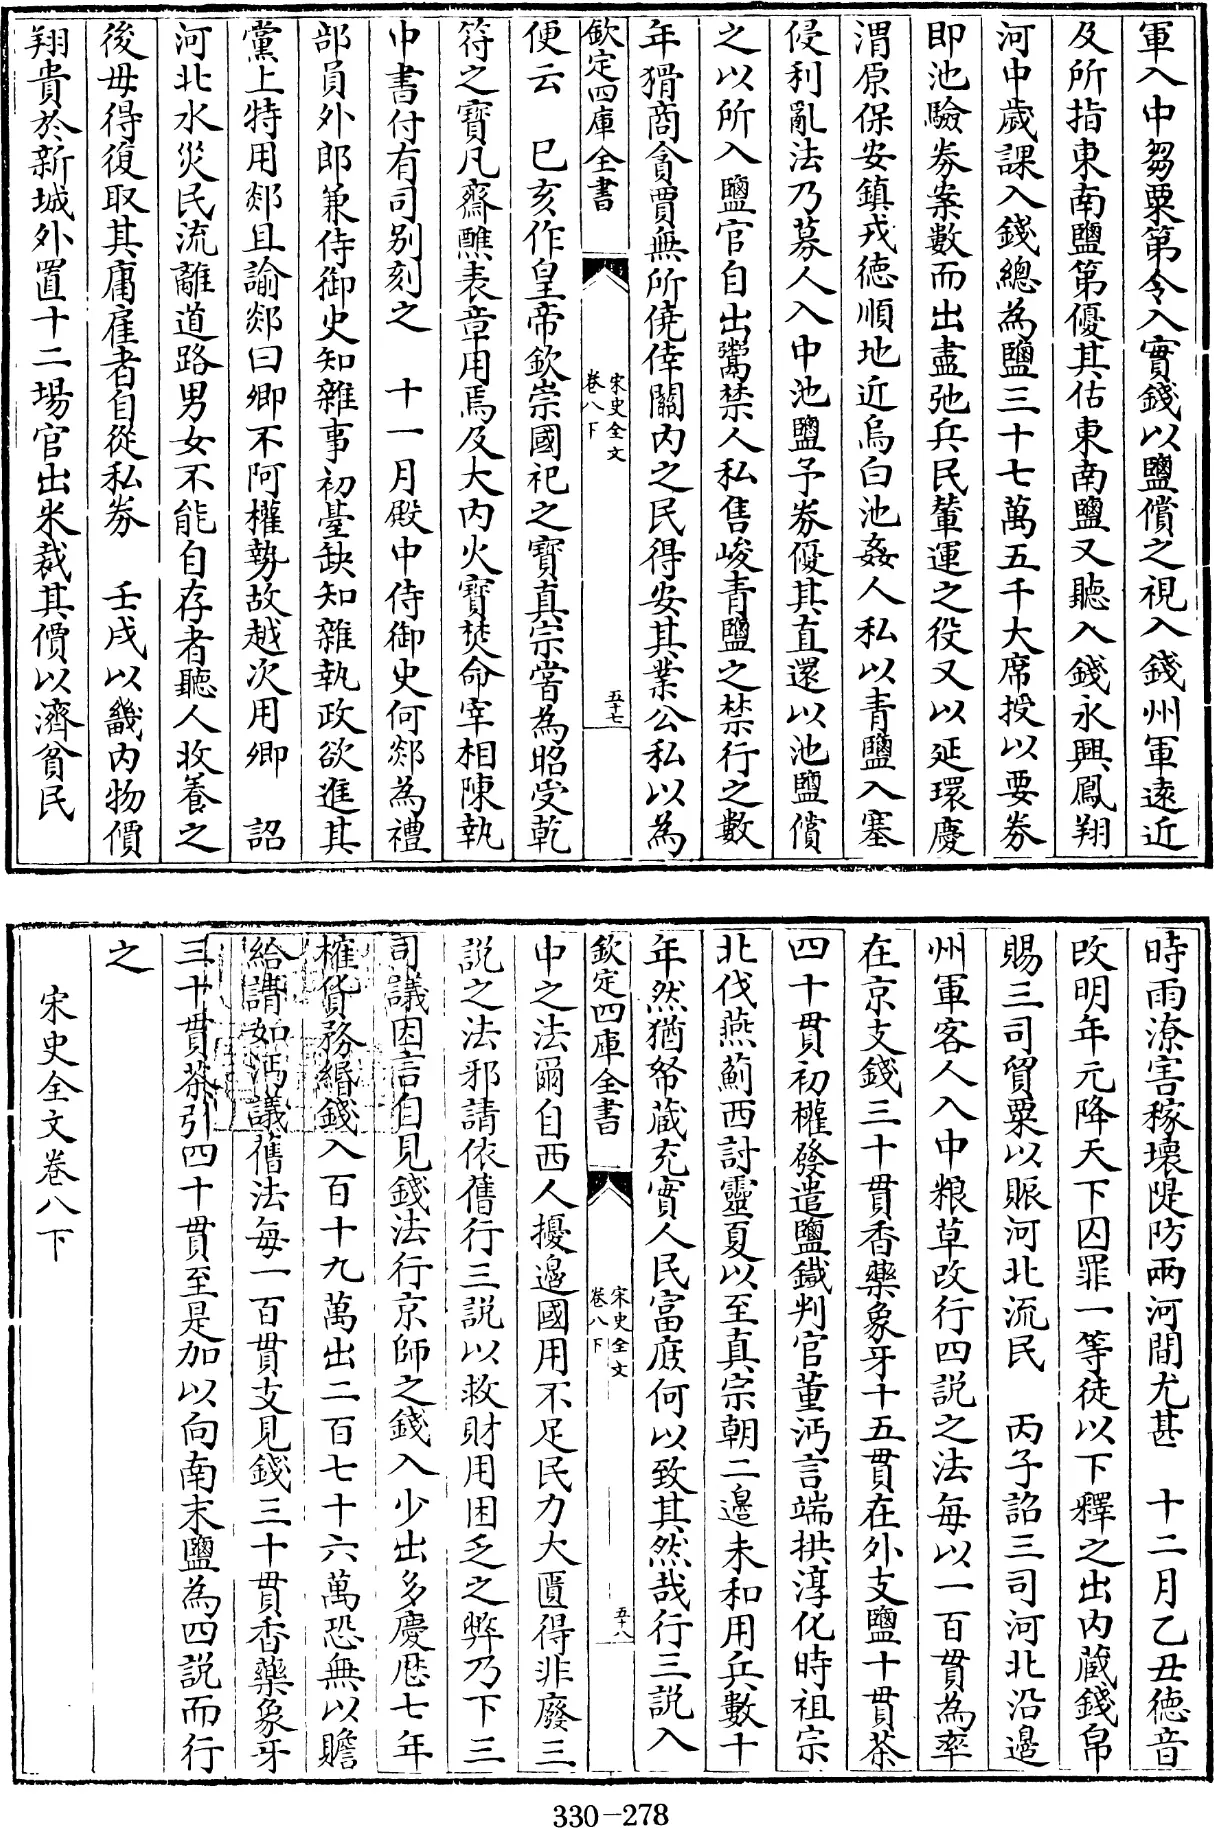 軍入中芻粟第令入實錢以鹽償之視入錢州軍遠近
及所指東南鹽第優其估東南鹽又聽入錢永興鳳翔
河中歲課入錢總為鹽三十七萬五千大席授以要劵
即池驗劵案數而出盡弛兵民輦運之役又以延環慶
渭原保安鎮戎徳順地近烏白池姦人私以青鹽入塞
侵利亂法乃募人入中池鹽予劵優其直還以池鹽償
之以所入鹽官自出鬻禁人私售峻青鹽之禁行之數
年猾商貪賈無所僥倖關内之民得安其業公私以為
欽定四庫全書
宋史全文
卷八下
五十七
便云　巳亥作皇帝欽崇國祀之寳真宗嘗為昭受乾
符之寳凡齋醮表章用焉及大内火寳焚命宰相陳執
中書付有司别刻之　十一月殿中侍御史何郯為禮
部員外郎兼侍御史知雜事初臺缺知雜執政欲進其
黨上特用郯且諭郯曰卿不阿權勢故越次用卿　詔
河北水災民流離道路男女不能自存者聽人收養之
後毋得復取其庸雇者自從私劵　壬戌以畿内物價
翔貴於新城外置十二場官出米裁其價以濟貧民
時雨潦害稼壞隄防兩河間尤甚　十二月乙丑徳音
改明年元降天下囚罪一等徒以下釋之出内蔵錢帛
賜三司貿粟以賑河北流民　丙子詔三司河北沿邉
州軍客人入中粮草改行四説之法每以一百貫為率
在京支錢三十貫香藥象牙十五貫在外支鹽十貫茶
四十貫初權發遣鹽鐵判官董沔言端拱淳化時祖宗
北伐燕薊西討靈夏以至真宗朝二邉未和用兵數十
年然猶帑蔵充實人民富庶何以致其然哉行三説入
欽定四庫全書
宋史全文
卷八下
五十八
中之法爾自西人擾邉國用不足民力大匱得非廢三
説之法邪請依舊行三説以救財用困乏之弊乃下三
司議因言自見錢法行京師之錢入少出多慶厯七年
榷貨務緡錢入百十九萬出二百七十六萬恐無以贍
給請如沔議舊法每一百貫支見錢三十貫香藥象牙
三十貫茶引四十貫至是加以向南末鹽為四説而行
之
宋史全文卷八下
330-278